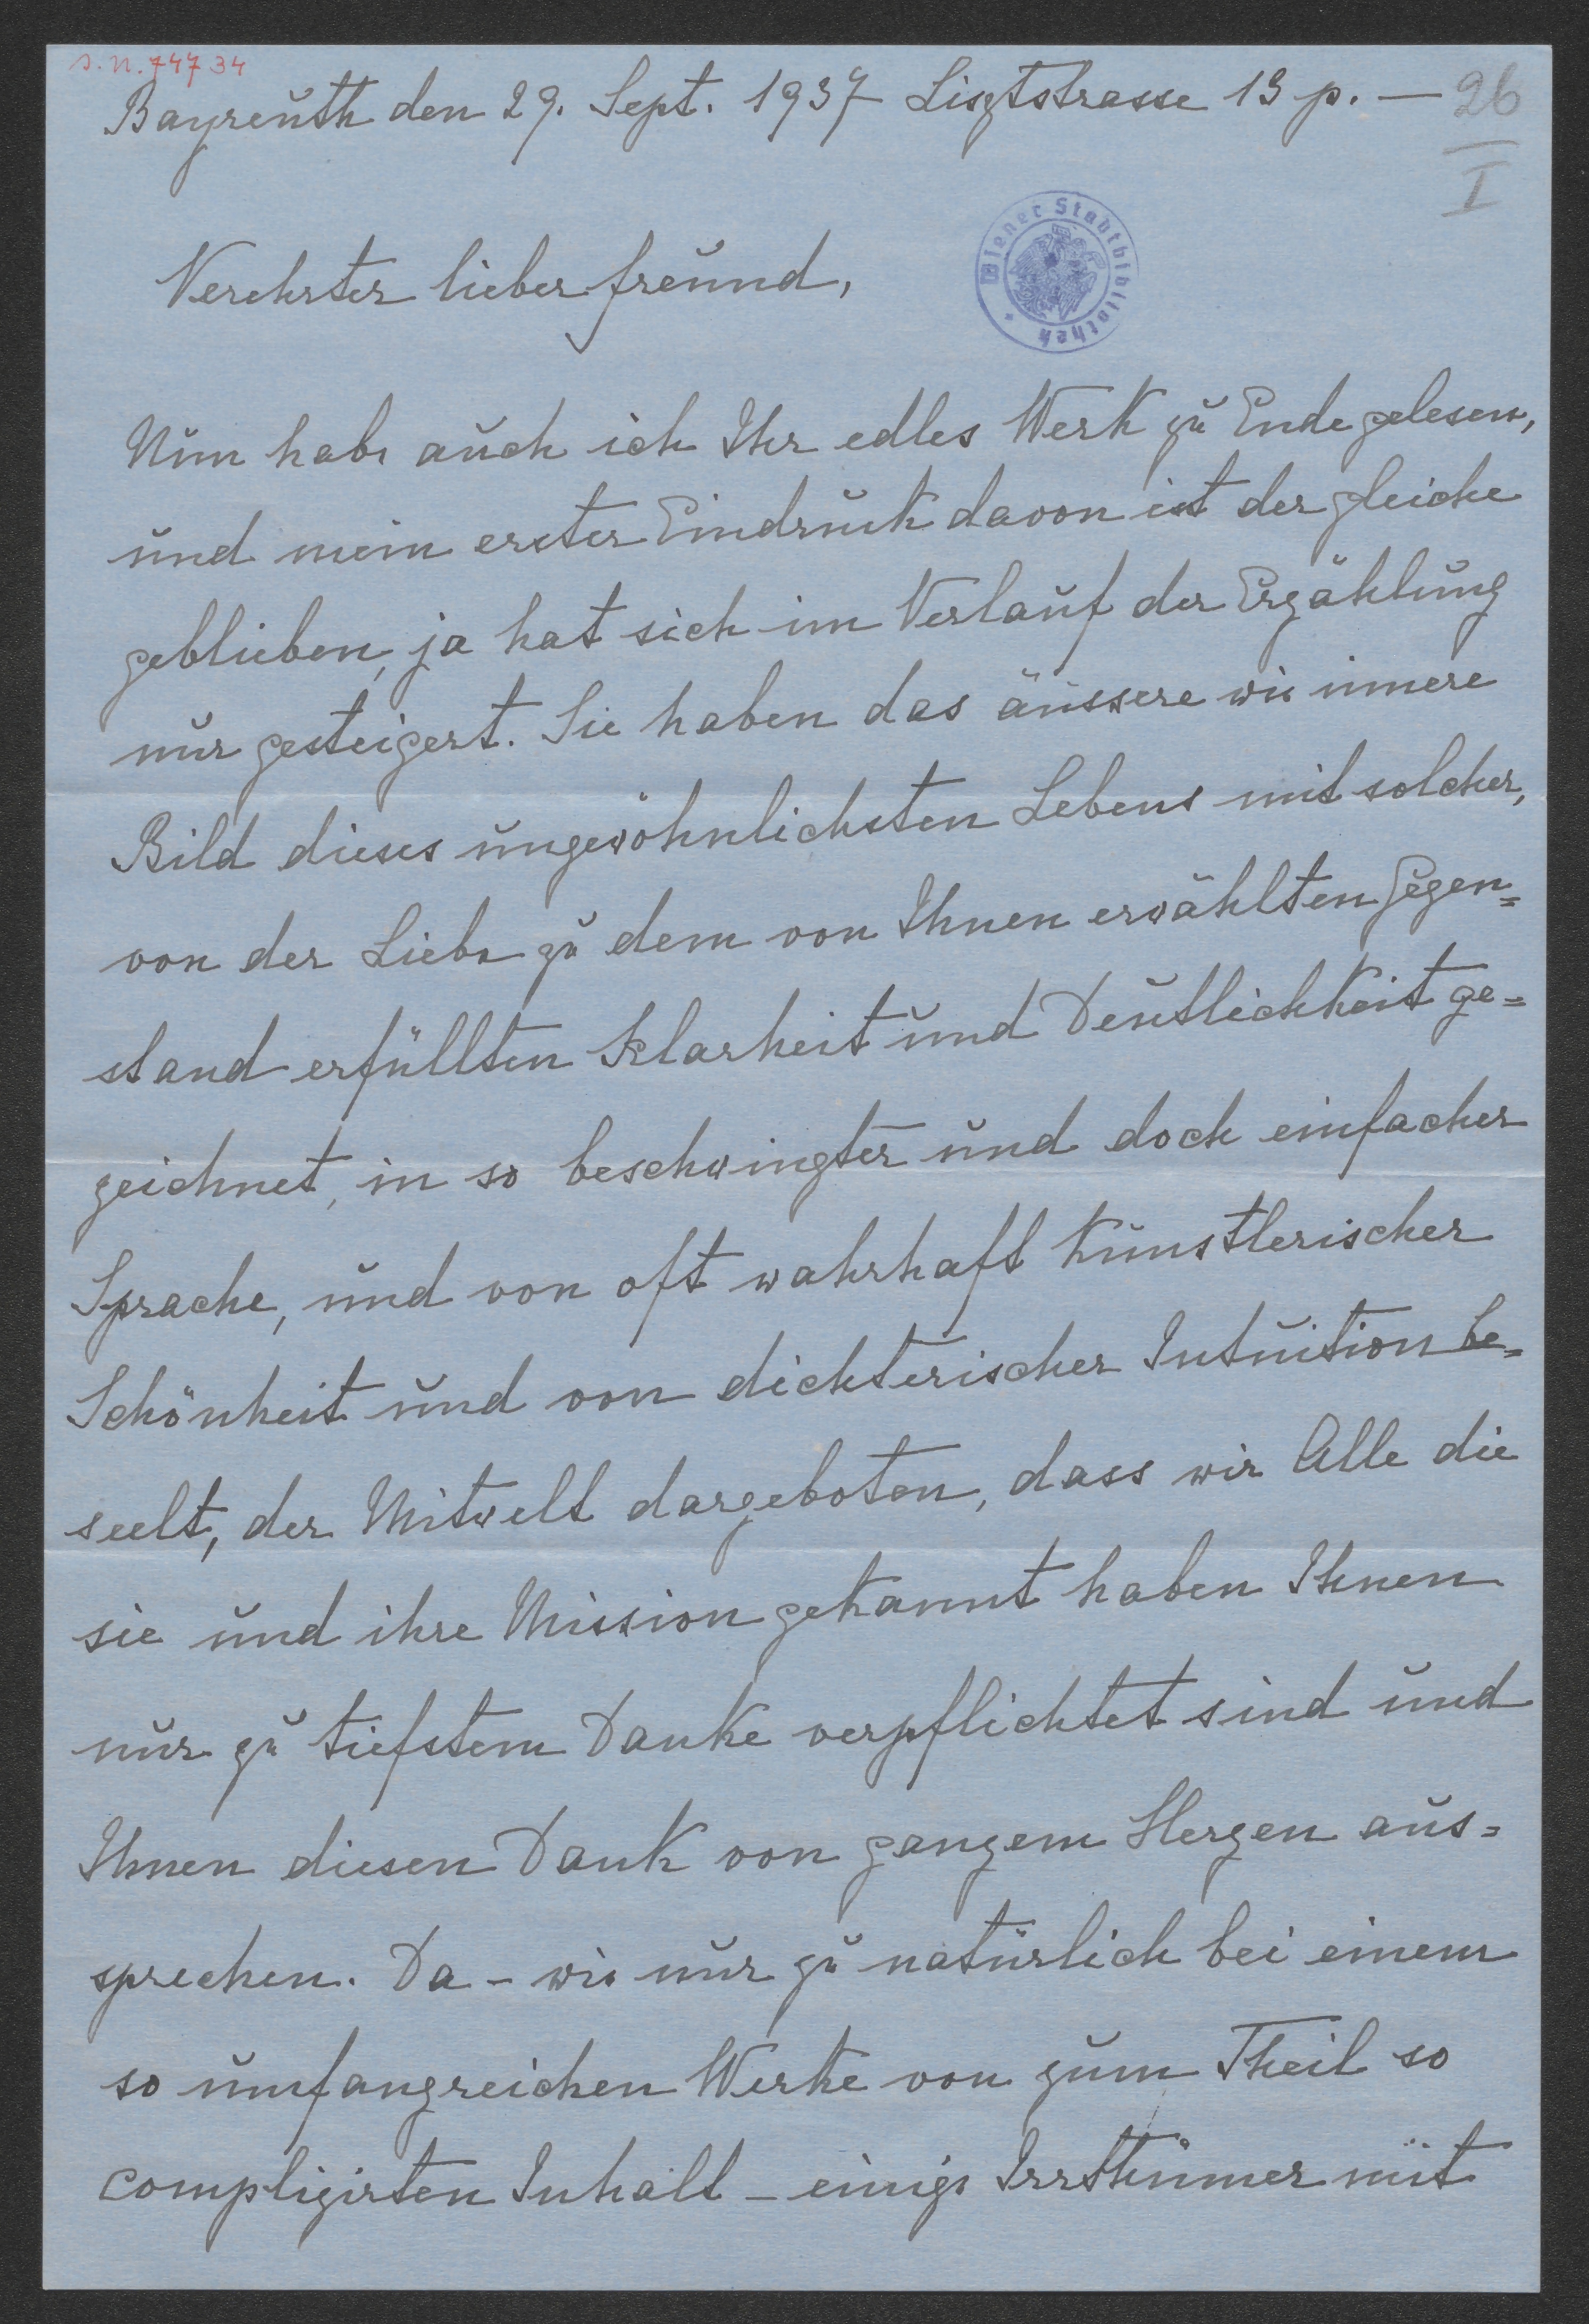 J.N. 74734
Bayreuth den 29. Sept. 1937 Lisztstrasse 13 p. —
26
I
Wiener Stadtbibliothek
Verehrter lieber Freund,
Nun habe auch ich Ihr edles Werk zu Ende gelesen,
und mein erster Eindruck davon ist der gleiche
geblieben, ja hat sich im Verlauf der Erzählung
nur gesteigert. Sie haben das äussere wie innere
Bild dieses ungewöhnlichsten Lebens mit solcher,
von der Liebe zu dem von Ihnen erwählten Gegen=
stand erfüllten Klarheit und Deutlichkeit ge=
zeichnet, in so beschwingter und doch einfacher
Sprache, und von oft wahrhaft künstlerischer
Schönheit und von dichterischer Intuition be=
seelt, der Mitwelt dargeboten, dass wir Alle die
sie und ihre Mission gekannt haben Ihnen
nur zu tiefstem Danke verpflichtet sind und
Ihnen diesen Dank von ganzem Herzen aus=
sprechen. Da – wie nur zu natürlich bei einem
so umfangreichen Werke von zum Theil so
complizirten Inhalt – einige Irrthümer mit